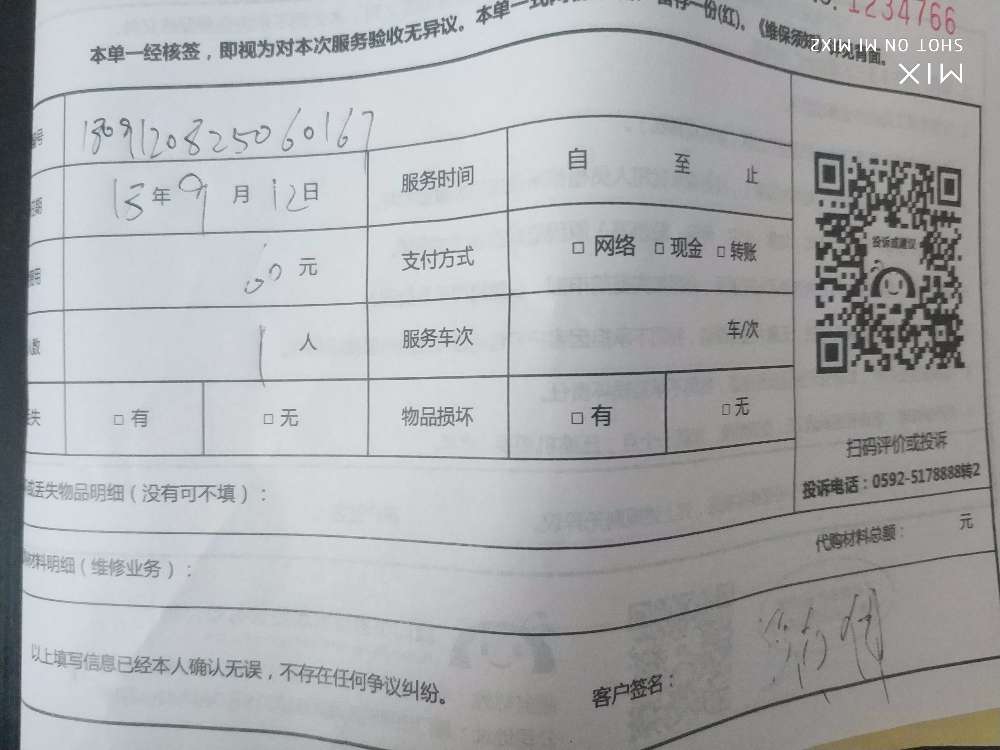 1234766
本单一经核签，即视为对本次服务验收无异议。本单一式
暂存一份(红)。《维保须知》详见背面。
SHOT ON MI MIX2
MIX
编号 1809120825060167
日期 18年9月12日 服务时间 自 至 止
费用 60元 支付方式 □ 网络 □ 现金 □ 转账
人数 1人 服务车次 车/次
丢失 □ 有 □ 无 物品损坏 □ 有 □ 无
投诉或建议
扫码评价或投诉
投诉电话：0592-5178888转2
或丢失物品明细（没有可不填）：
材料明细（维修业务）：
代购材料总额： 元
以上填写信息已经本人确认无误，不存在任何争议纠纷。
客户签名：